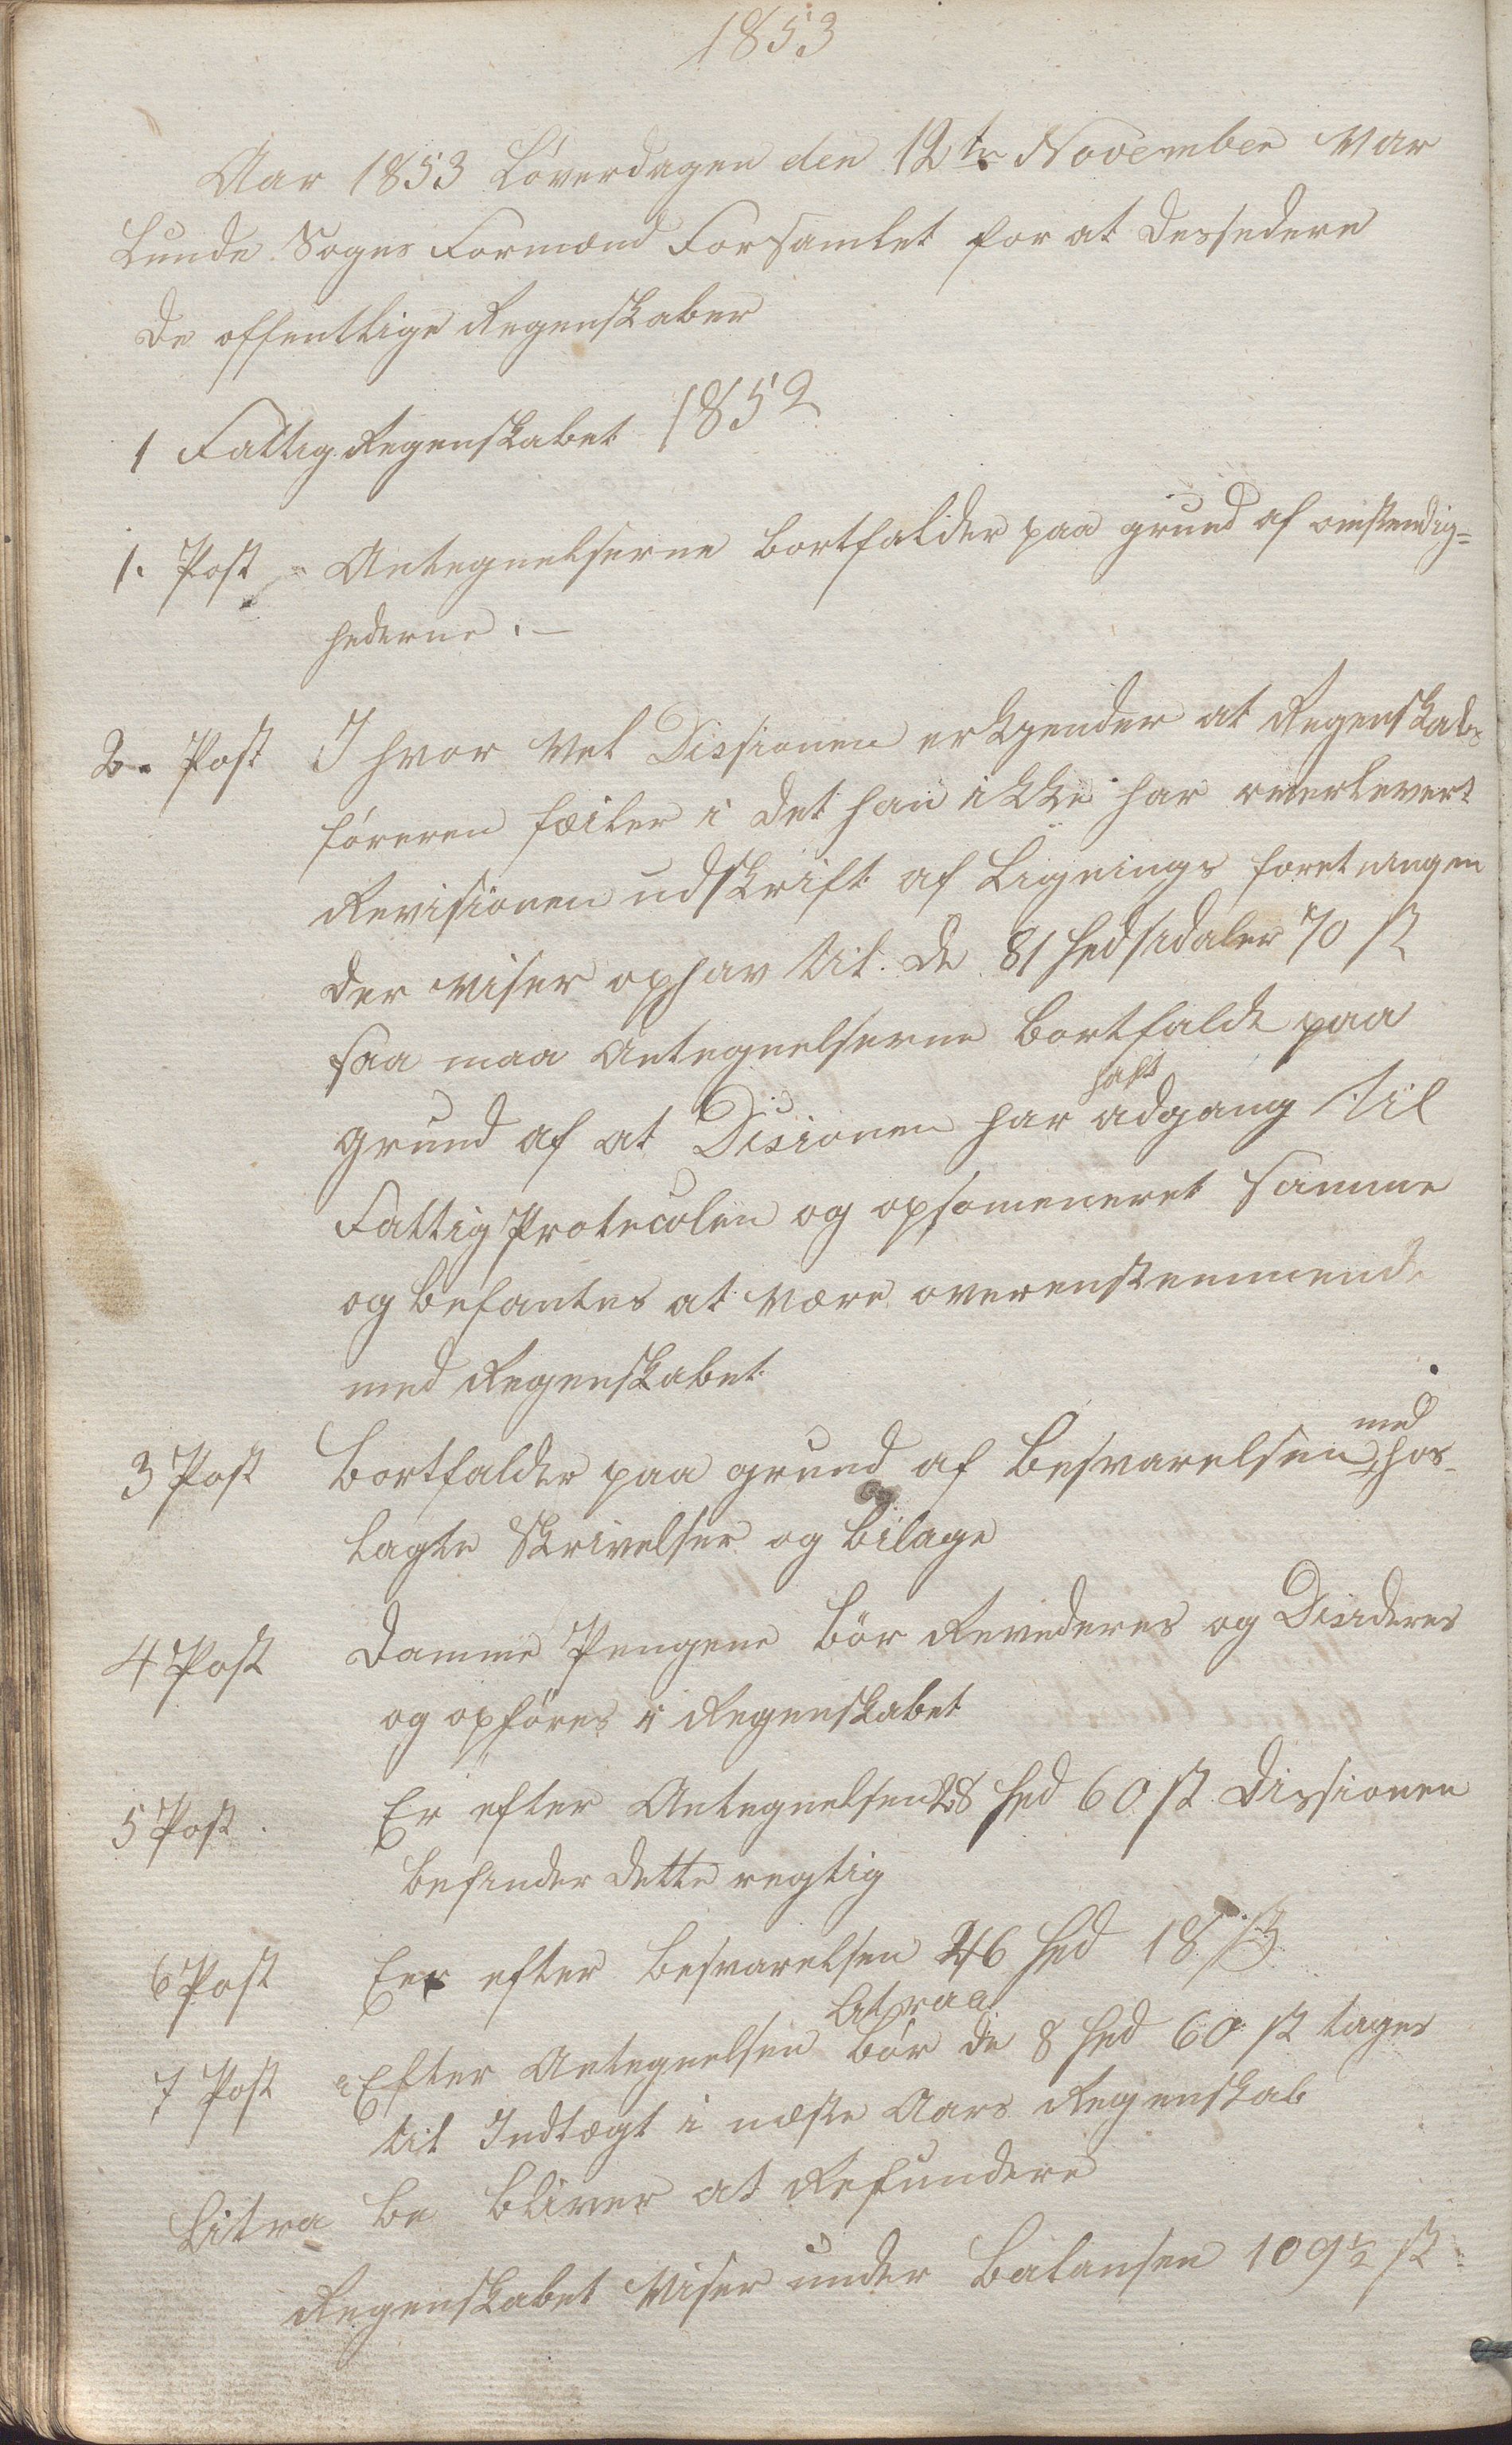 1853
Aar 1853 Löverdagen den 12te November var
Lunde Sogns Formænd Forsamlet for at Dessedere
De offentlige Regenskaber
1 Fattig Regenskabet 1852
1. Post Antegnelserne bortfalder paa grund af omstendig=
hederne. —
2. Post I hvor vel Dissionen erkjender at Regenskabs
föreren fæiler i det han ikke har overlevert
Revisionen udskrift af Lignings foretningen
der viser ophav til de 81 Spedsidaler 70 s
saa maa Antegnelserne bortfalde paa
grund af at Disionen har haft adgang til
Fattig Protecolen og opsomeneret samme
og befantes at være overenstemmende
med Regenskabet
3 Post Bortfalder paa grund af Besvarelsen med hos-
lagte Skrivelser og Bilage
4 Post Damme Pengene bör Revederes og Desideres
og opföres i Regenskabet
5 Post. Er efter Antegnelsen 28 Spd 60 s Dissionen
befinder dette regtig
6 Post Eer efter besvarelsen 46 Spd 18 s
7 Post Efter Antegnelsen Litraa bör de 8 Spd 60 s tages
til Indtægt i næste Aars Regenskab
Litra be bliver at Refundere
Regenskabet viser under Balansen 109 ½ s